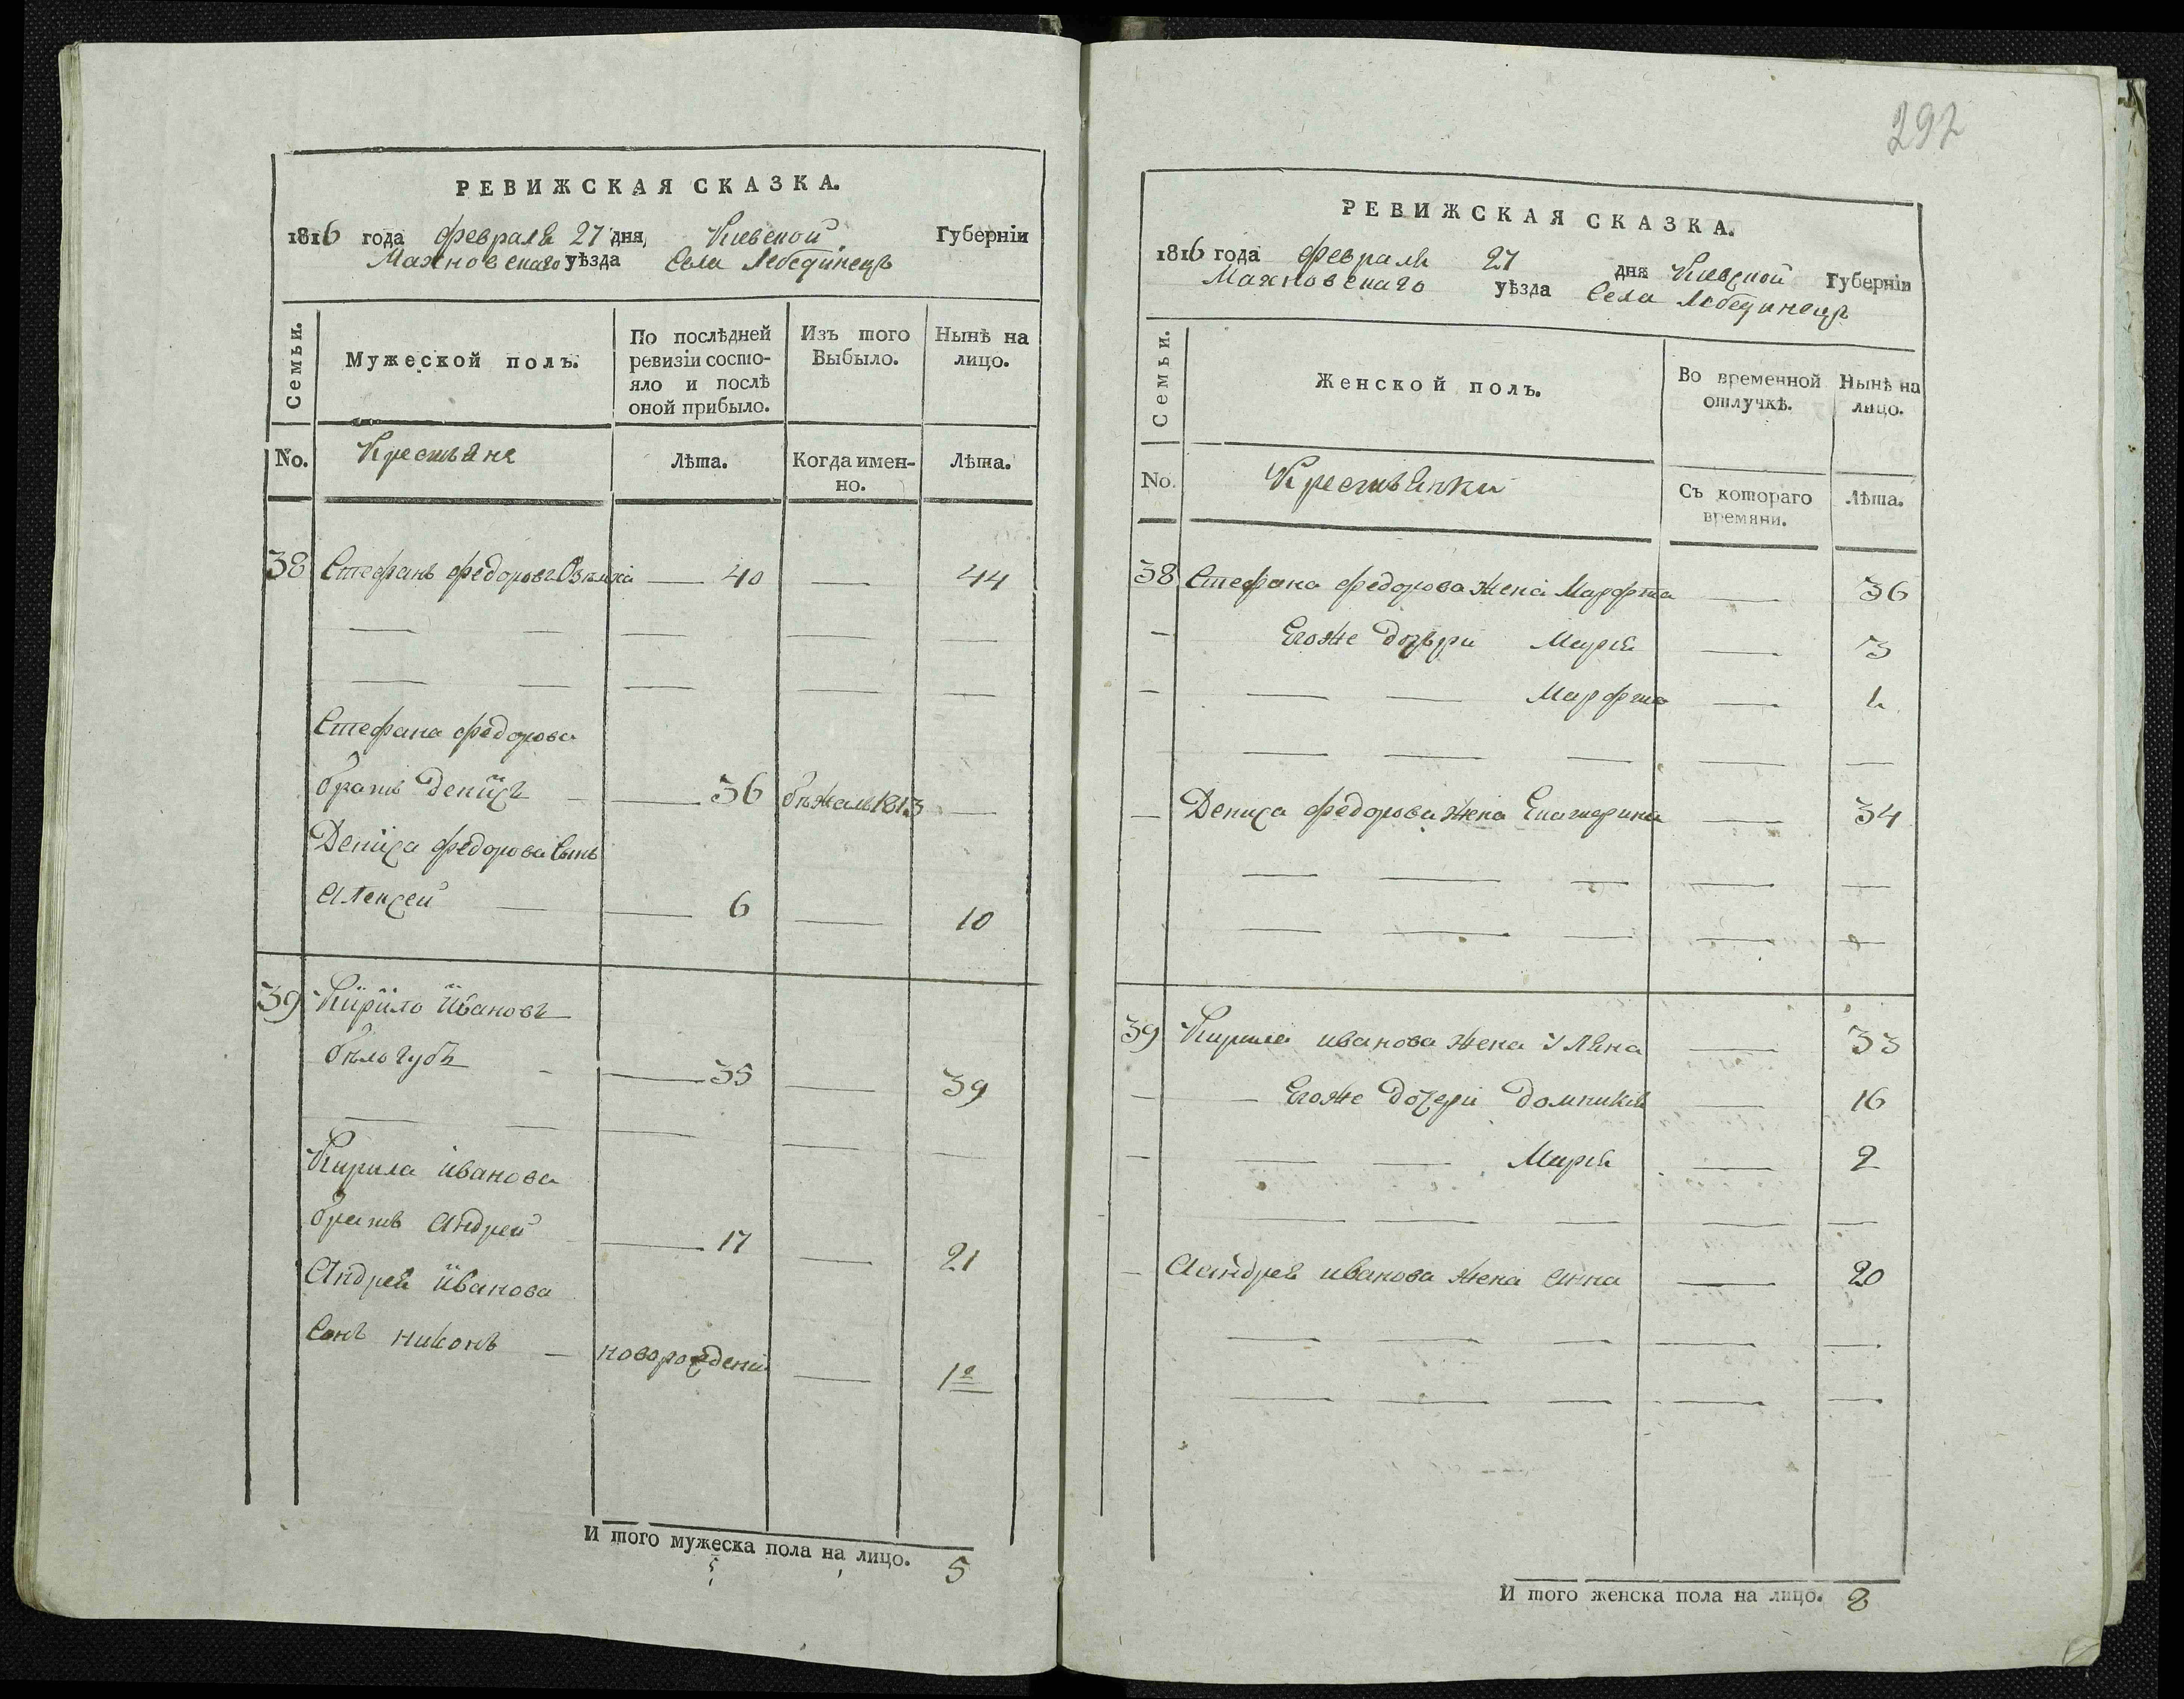 292
РЕВИЖСКАЯ СКАЗКА.
1816 года февраля 27 дня, Киевской Губернїи
Махновскаго уѣзда Села Лебединецъ
Семьи.
Мужеской полъ.
По послѣдней ревизїи состояло и послѣ оной прибыло.
Изъ того Выбыло.
Нынѣ на лицо.
No.
Крестьяне
Лѣта.
Когда именно.
Лѣта.
38 Стефанъ федоровъ — 40 — 44
Стефана федорова
братъ Денисъ — 36 бѣжалъ 1813 —
Дениса федорова сынъ
Алексей — 6 — 10
39 Кирило Ивановъ
бѣлогубъ — 35 — 39
Кирила иванова
братъ Андрей — 17 — 21
Андрея иванова
Сынъ никонъ — новорожденный — 1
И того мужеска пола на лицо. 5
РЕВИЖСКАЯ СКАЗКА.
1816 года февраля 27 дня Киевской Губернїи
Махновскаго уѣзда Села Лебединецъ
Семьи.
Женской полъ.
Во временной отлучкѣ.
Нынѣ на лицо.
No.
Крестьянки
Съ котораго времяни.
Лѣта.
38 Стефана федорова жена Марфа — 36
— Егоже дочери Марїя — 3
— Марфа — 1
— Дениса федорова жена Екатерина — 34
39 Кирила иванова жена Уляна — 33
— Егоже дочери домникия — 16
— Марїя — 2
— Андрея иванова жена анна — 20
И того женска пола на лицо. 8